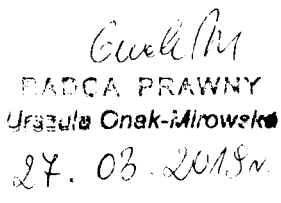 RADCA PRAWNY
Urszula Onak-Mirowska
27. 03. 2019r.